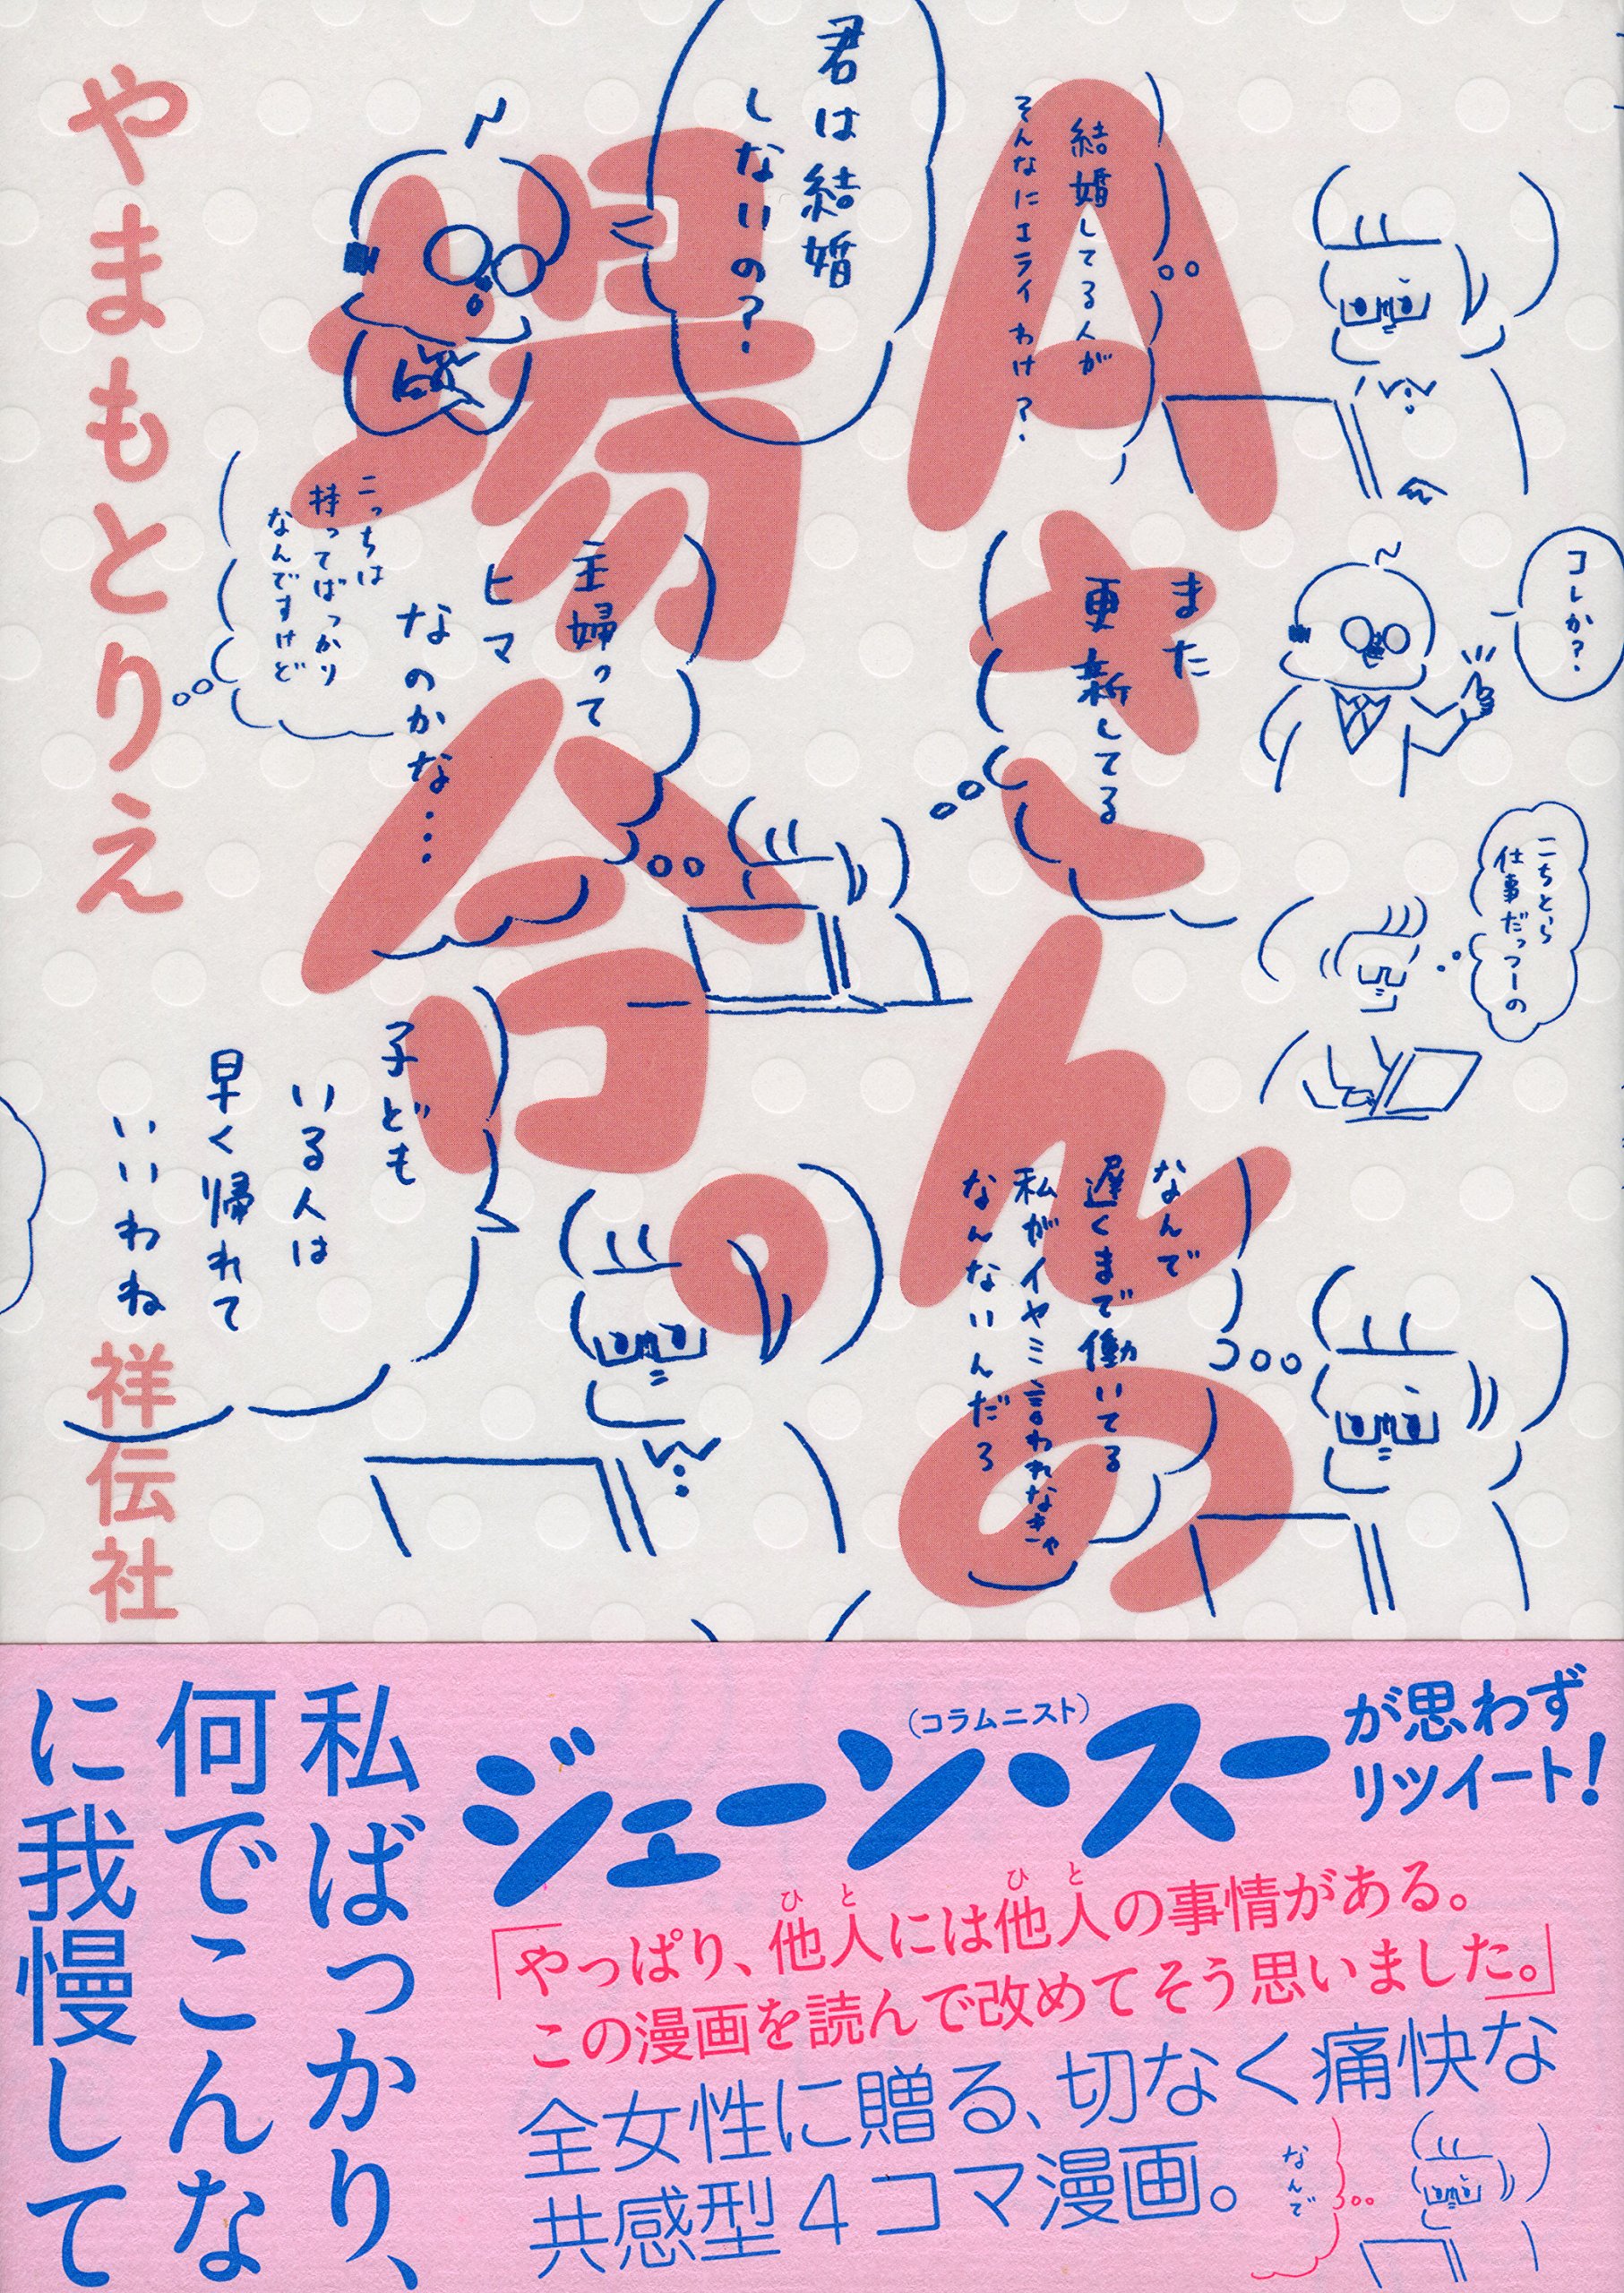 Aさんの
場合。
やまもとりえ
祥伝社
結婚してる人が
そんなにエライわけ？
君は結婚
しないの？
コレか？
また
更新してる
こちとら
仕事だっつーの
主婦って
ヒマ
なのかな…
こっちは
持ってばっかり
なんですけど
なんで
遅くまで働いてる
私がイヤミ言われなきゃ
なんないんだろ
子ども
いる人は
早く帰れて
いいわね
（コラムニスト）
ジェーン・スーが思わず
リツイート！
「やっぱり、他人には他人の事情がある。
ひと ひと
この漫画を読んで改めてそう思いました。」
全女性に贈る、切なく痛快な
共感型4コマ漫画。
なんで
私ばっかり、
何でこんな
に我慢して